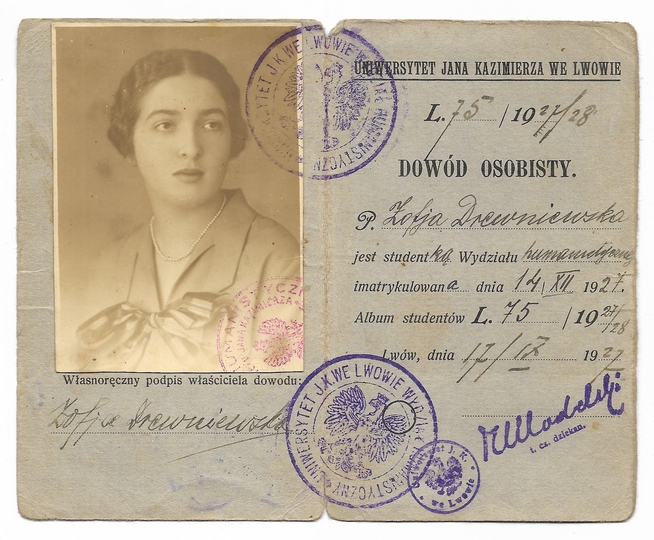 UNIWERSYTET JANA KAZIMIERZA WE LWOWIE
L. 75 / 1927/28
DOWÓD OSOBISTY.
P. Zofja Drewniewska
jest studentką Wydziału humanistyczne
imatrykulowana dnia 14 XII 1927.
Album studentów L. 75 / 1927/28
Lwów, dnia 17/IX 1927
t. cz. dziekan.
Własnoręczny podpis właściciela dowodu:
Zofja Drewniewska
UNIWERSYTET J.K. WE LWOWIE WYDZIAŁ HUMANISTYCZNY
UNIWERSYTET J.K. WE LWOWIE WYDZIAŁ HUMANISTYCZNY
Uniwersytet J. K. we Lwowie